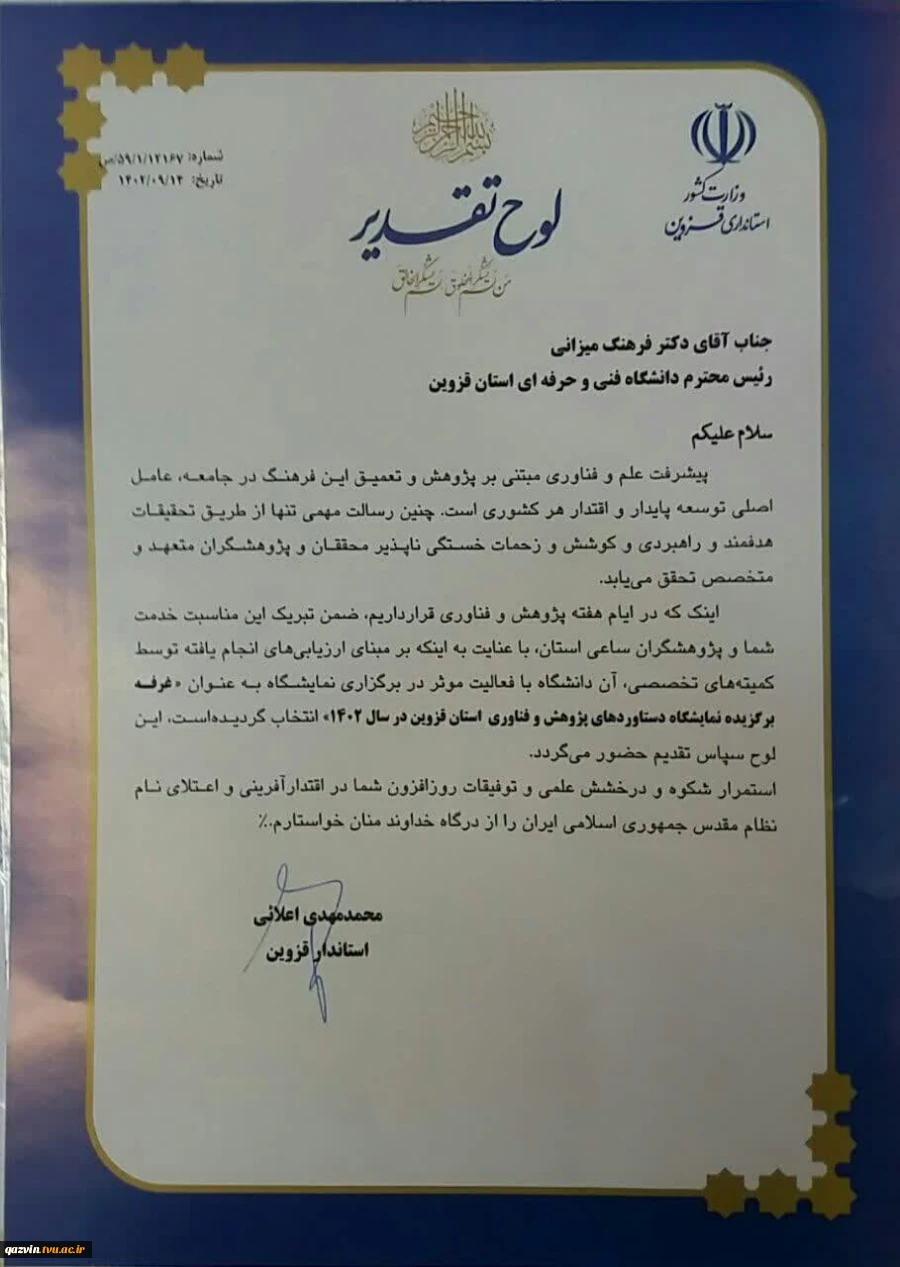 بسم الله الرحمن الرحیم
وزارت کشور
استانداری قزوین
شماره: ۵۹/۱/۱۲۱۶۷/ص
تاریخ: ۱۴۰۲/۰۹/۱۴
لوح تقدیر
من لم یشکر المخلوق لم یشکر الخالق
جناب آقای دکتر فرهنگ میزانی
رئیس محترم دانشگاه فنی و حرفه ای استان قزوین
سلام علیکم
پیشرفت علم و فناوری مبتنی بر پژوهش و تعمیق این فرهنگ در جامعه، عامل
اصلی توسعه پایدار و اقتدار هر کشوری است. چنین رسالت مهمی تنها از طریق تحقیقات
هدفمند و راهبردی و کوشش و زحمات خستگی ناپذیر محققان و پژوهشگران متعهد و
متخصص تحقق می‌یابد.
اینک که در ایام هفته پژوهش و فناوری قرارداریم، ضمن تبریک این مناسبت خدمت
شما و پژوهشگران ساعی استان، با عنایت به اینکه بر مبنای ارزیابی‌های انجام یافته توسط
کمیته‌های تخصصی، آن دانشگاه با فعالیت موثر در برگزاری نمایشگاه به عنوان «غرفه
برگزیده نمایشگاه دستاوردهای پژوهش و فناوری استان قزوین در سال ۱۴۰۲» انتخاب گردیده‌است، این
لوح سپاس تقدیم حضور می‌گردد.
استمرار شکوه و درخشش علمی و توفیقات روزافزون شما در اقتدارآفرینی و اعتلای نام
نظام مقدس جمهوری اسلامی ایران را از درگاه خداوند منان خواستارم.٪
محمدمهدی اعلائی
استاندار قزوین
qazvin.tvu.ac.ir